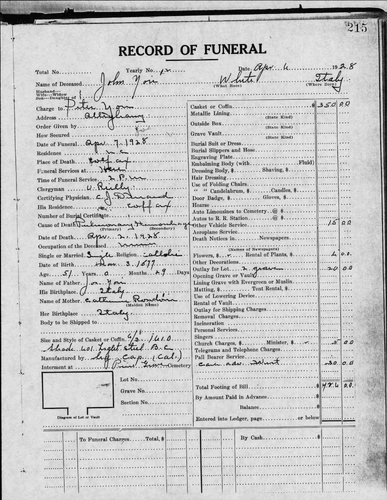 215
RECORD OF FUNERAL
Total No. Yearly No. Date Apr. 6 1928
Name of Deceased John Yori White Italy
(What Race) (Where Born)
Husband—Wife—Widow
Son—Daughter of
Charge to Peter Yori
Address Alleghany
Order Given by
How Secured
Date of Funeral Apr. 7, 1928
Residence
Place of Death Colfax
Funeral Services at
Time of Funeral Service 2 P.M.
Clergyman Reilly
Certifying Physician
His Residence Colfax
Number of Burial Certificate
Cause of Death Pulmonary
(Primary) (Secondary)
Date of Death Apr. 2, 1928
Occupation of the Deceased Miner
Single or Married Single Religion Catholic
Date of Birth Mar. 3, 1877
Age 51 Years 0 Months 29 Days
Name of Father Yori
His Birthplace Italy
Name of Mother
(Maiden Name)
Her Birthplace Italy
Body to be Shipped to
Size and Style of Casket or Coffin
Shade
Manufactured by
Interment at Cemetery
Lot No.
Grave No.
Section No.
Diagram of Lot or Vault
Casket or Coffin $ 350 00
Metallic Lining
(State Kind)
Outside Box
(State Kind)
Grave Vault
(State Kind)
Burial Suit or Dress
Burial Slippers and Hose
Engraving Plate
Embalming Body (with Fluid)
Dressing Body, $ Shaving, $
Hair Dressing
Use of Folding Chairs
" " Candelabrum, $ Candles, $
Door Badge, $ Gloves, $
Hearse
Auto Limousines to Cemetery @ $
Autos to R. R. Station @ $
Other Vehicle Service 15 00
Aeroplane Service
Death Notices in Newspapers
(Names of Newspapers)
Flowers, $ Rental of Plants, $ 6 00
Other Decorations
Outlay for Lot 2 graves 20 00
Opening Grave or Vault
Lining Grave with Evergreen or Muslin
Matting, $ Tent Rental, $
Use of Lowering Device
Rental of Vault
Outlay for Shipping Charges
Removal Charges
Incineration
Personal Services
Singers
Church Charges, $ Minister, $ 5 00
Telegrams and Telephone Charges
Pall Bearer Service
Cash adv. 30 00
Total Footing of Bill $
By Amount Paid in Advance
Balance
Entered into Ledger, page or below
To Funeral Charges Total $ By Cash $